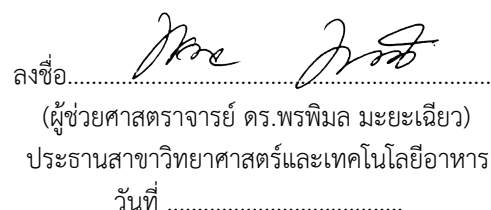 ลงชื่อ......................................................................
(ผู้ช่วยศาสตราจารย์ ดร.พรพิมล มะยะเฉียว)
ประธานสาขาวิทยาศาสตร์และเทคโนโลยีอาหาร
วันที่ ......................................